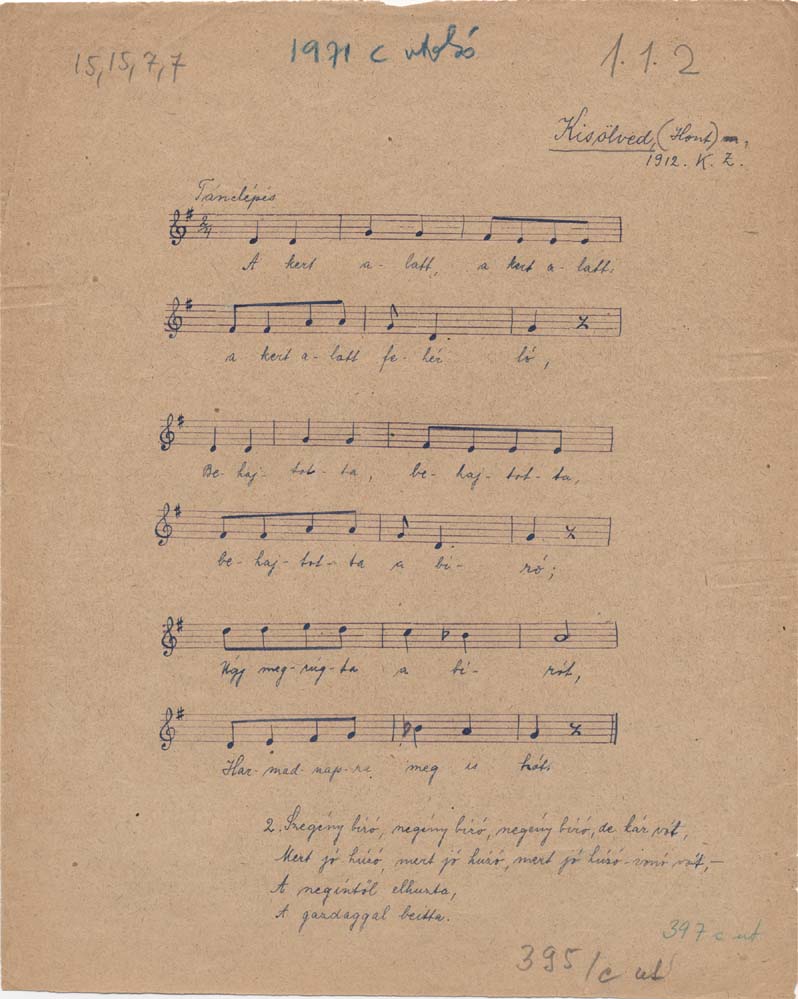 15, 15, 7, 7
1971 c utolsó
1.1.2
Kisölved, (Hont) m,
1912. K. Z.
Tánclépés
2/4
A kert a- latt, a kert a- latt
a kert a- latt fe- hér- ló,
Be- haj- tot- ta, be- haj- tot- ta,
be- haj- tot- ta a bí- ró;
Úgy meg- rúg- ta a bí- rót,
Har- mad- nap- ra meg is hót.
2. Szegény bíró, szegény bíró, szegény bíró, de kár vót,
Mert jó húzó, mert jó húzó, mert jó húzó-vonó vót, –
A szegíntől elhuzta,
A gazdaggal beitta.
397 c ut
395/c ut